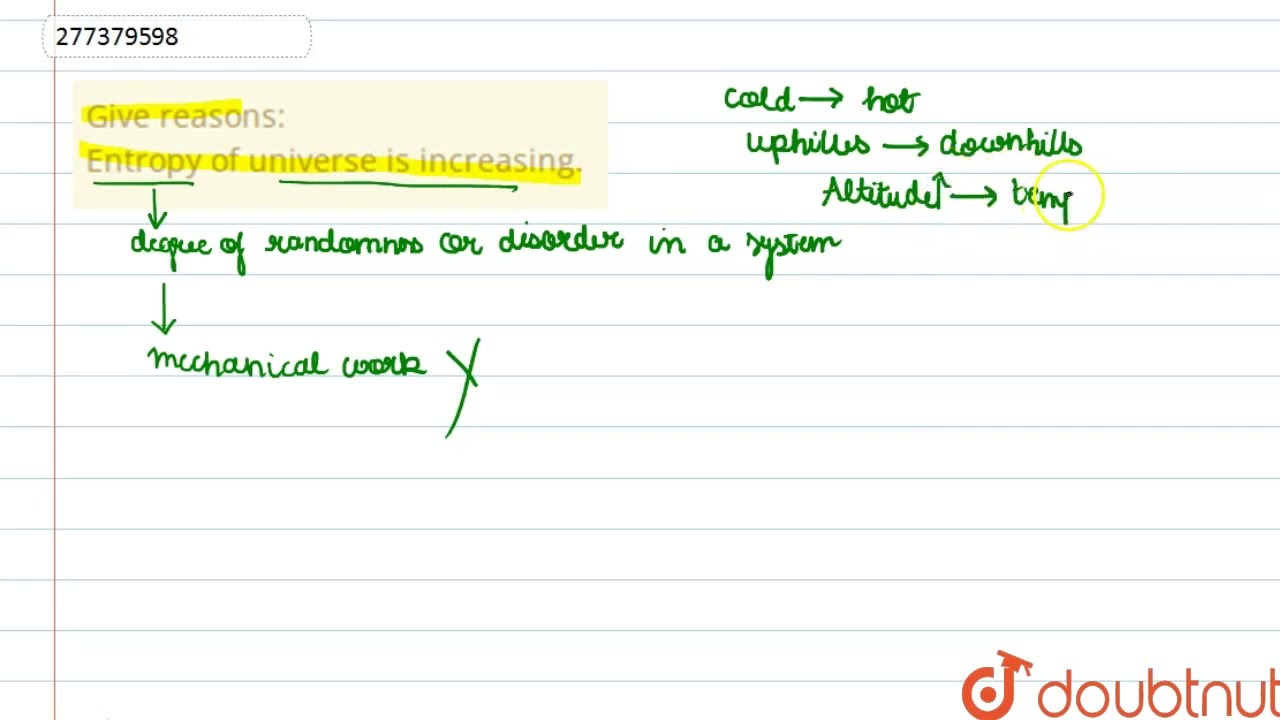 277379598
Give reasons:
Entropy of universe is increasing.
cold → hot
uphilles → downhills
Altitude↑ → temp
degree of randomnes or disorder in a system
mechanical work X
doubtnut